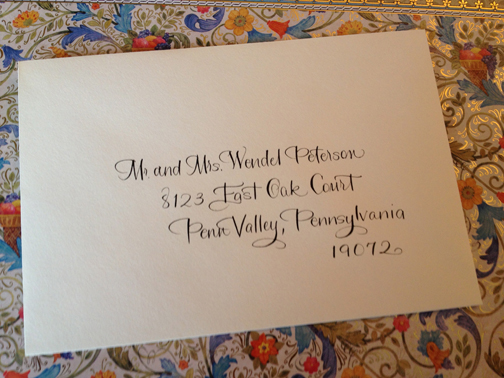 Mr. and Mrs. Wendel Peterson
8123 East Oak Court
Penn Valley, Pennsylvania
19072